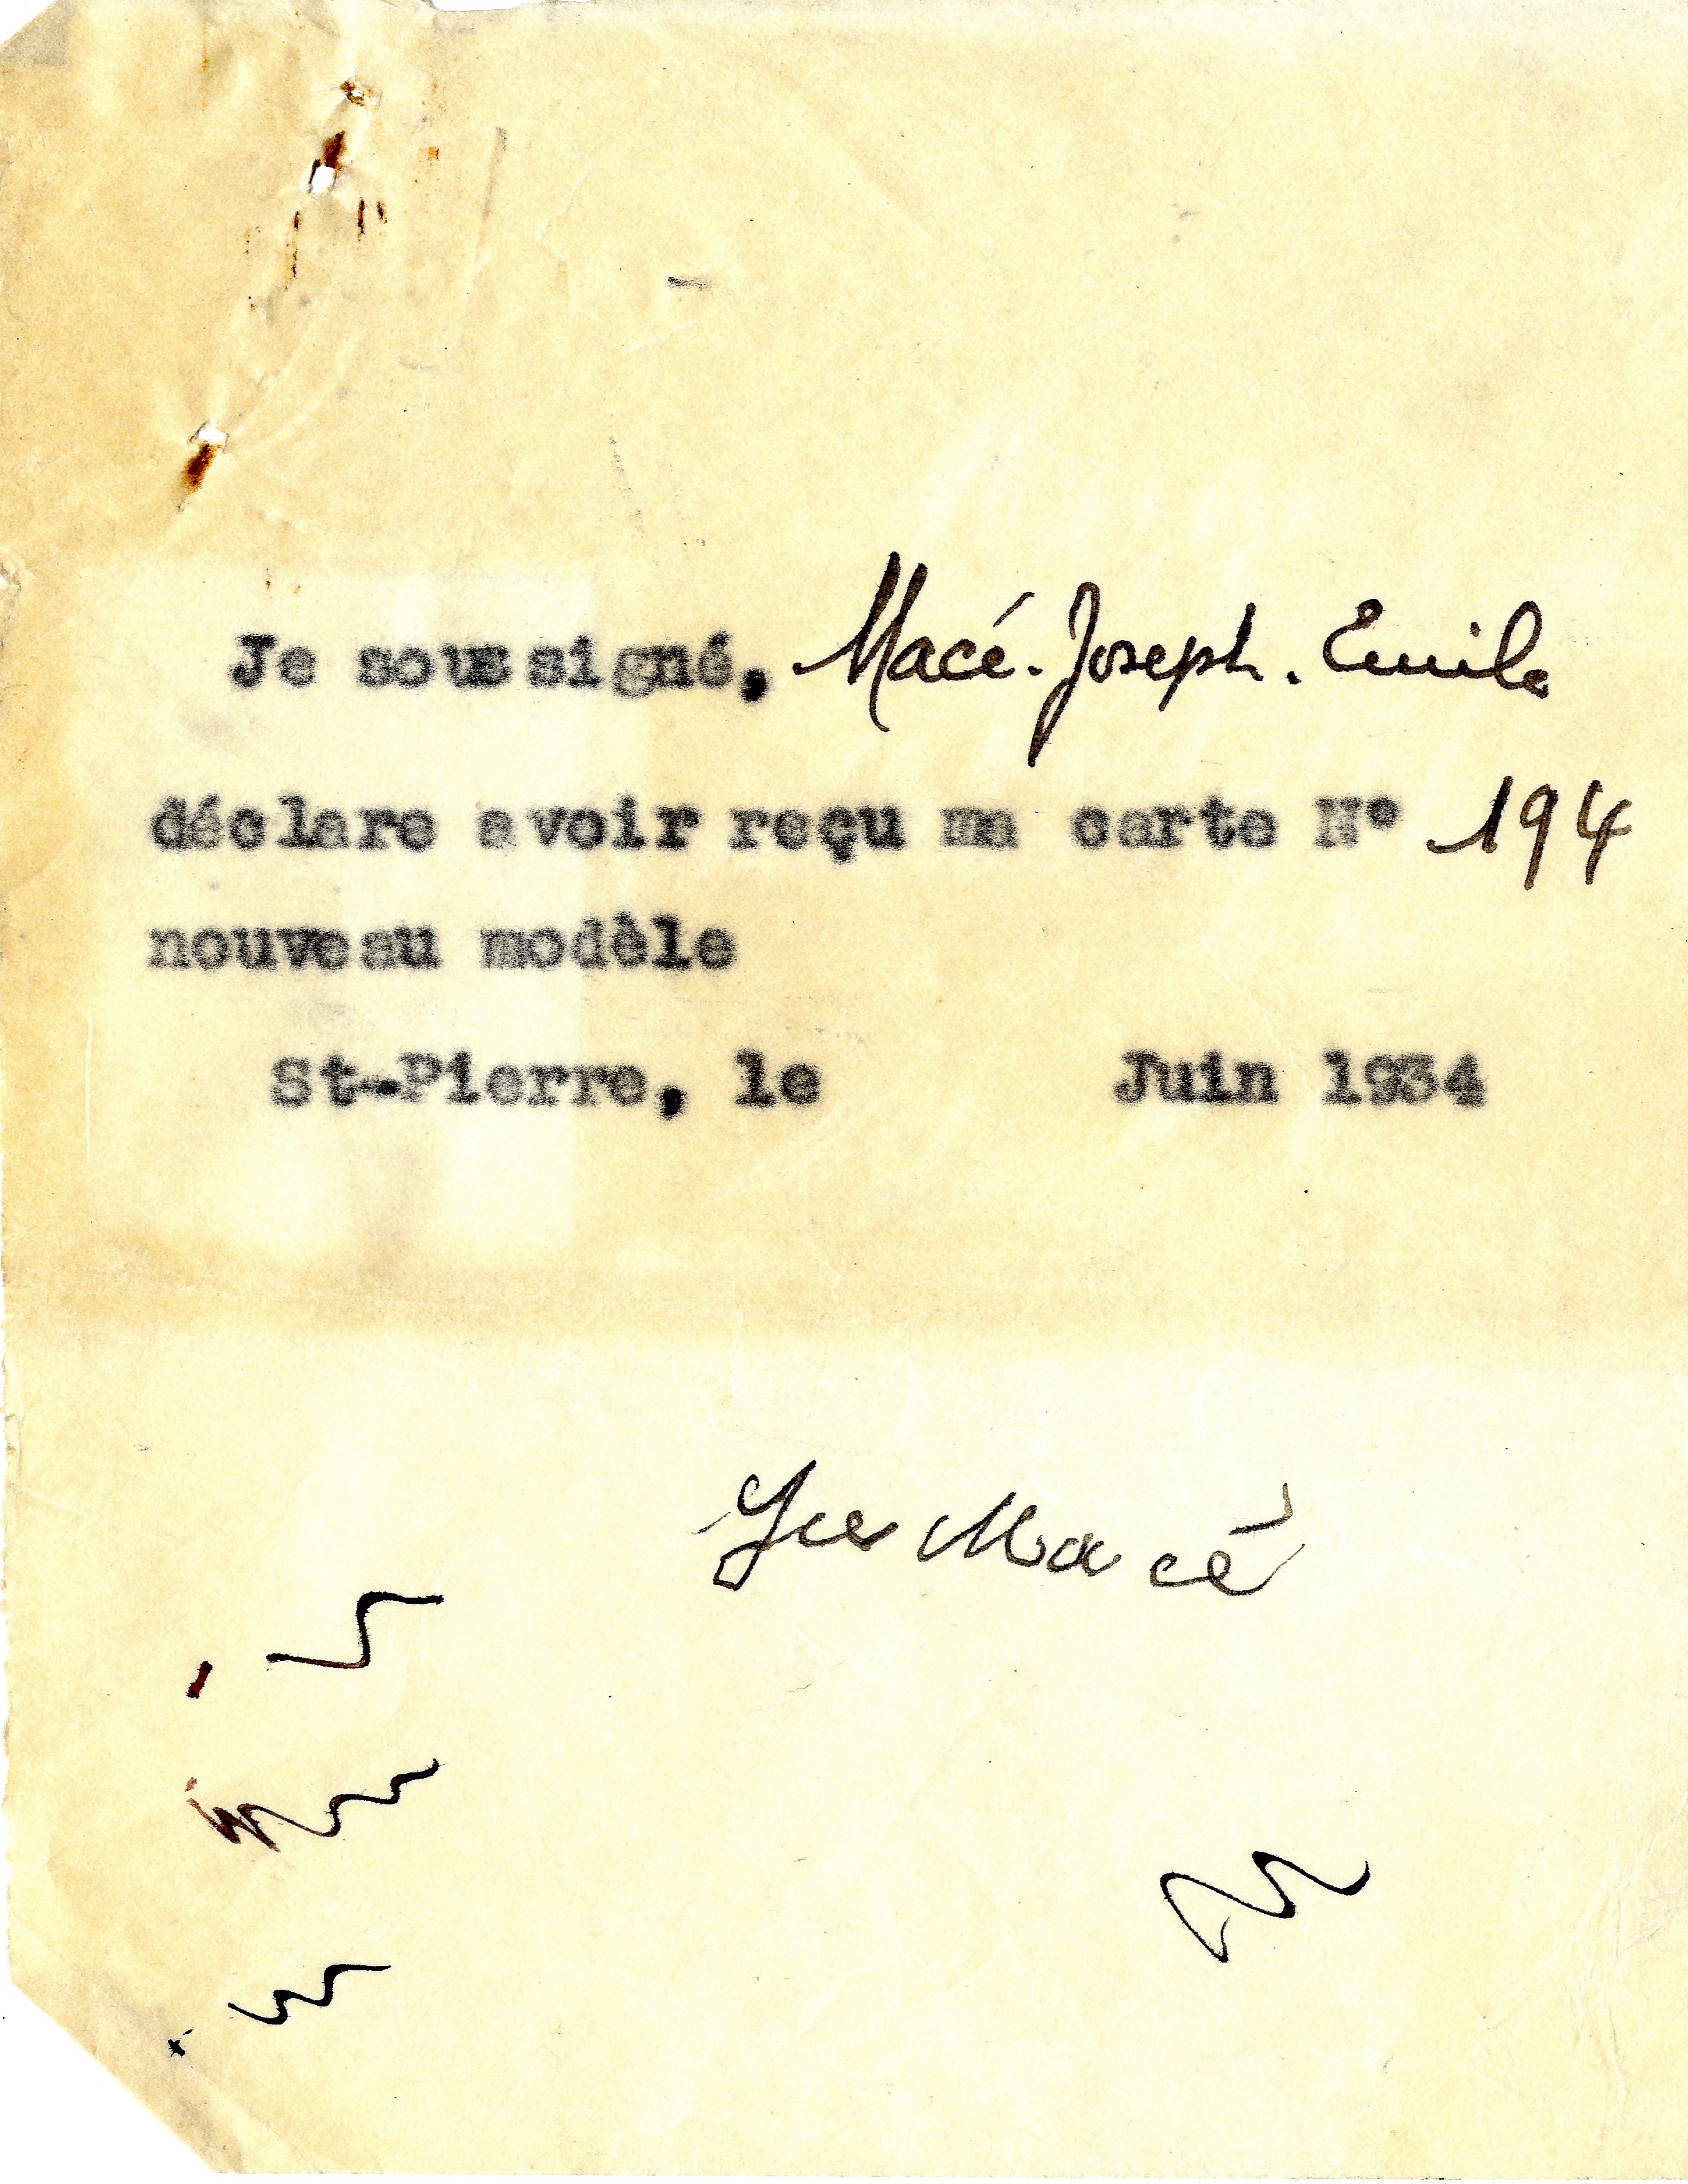 Je soussigné, Macé. Joseph. Emile
déclare avoir reçu ma carte N° 194
nouveau modèle
St-Pierre, le Juin 1934
Macé